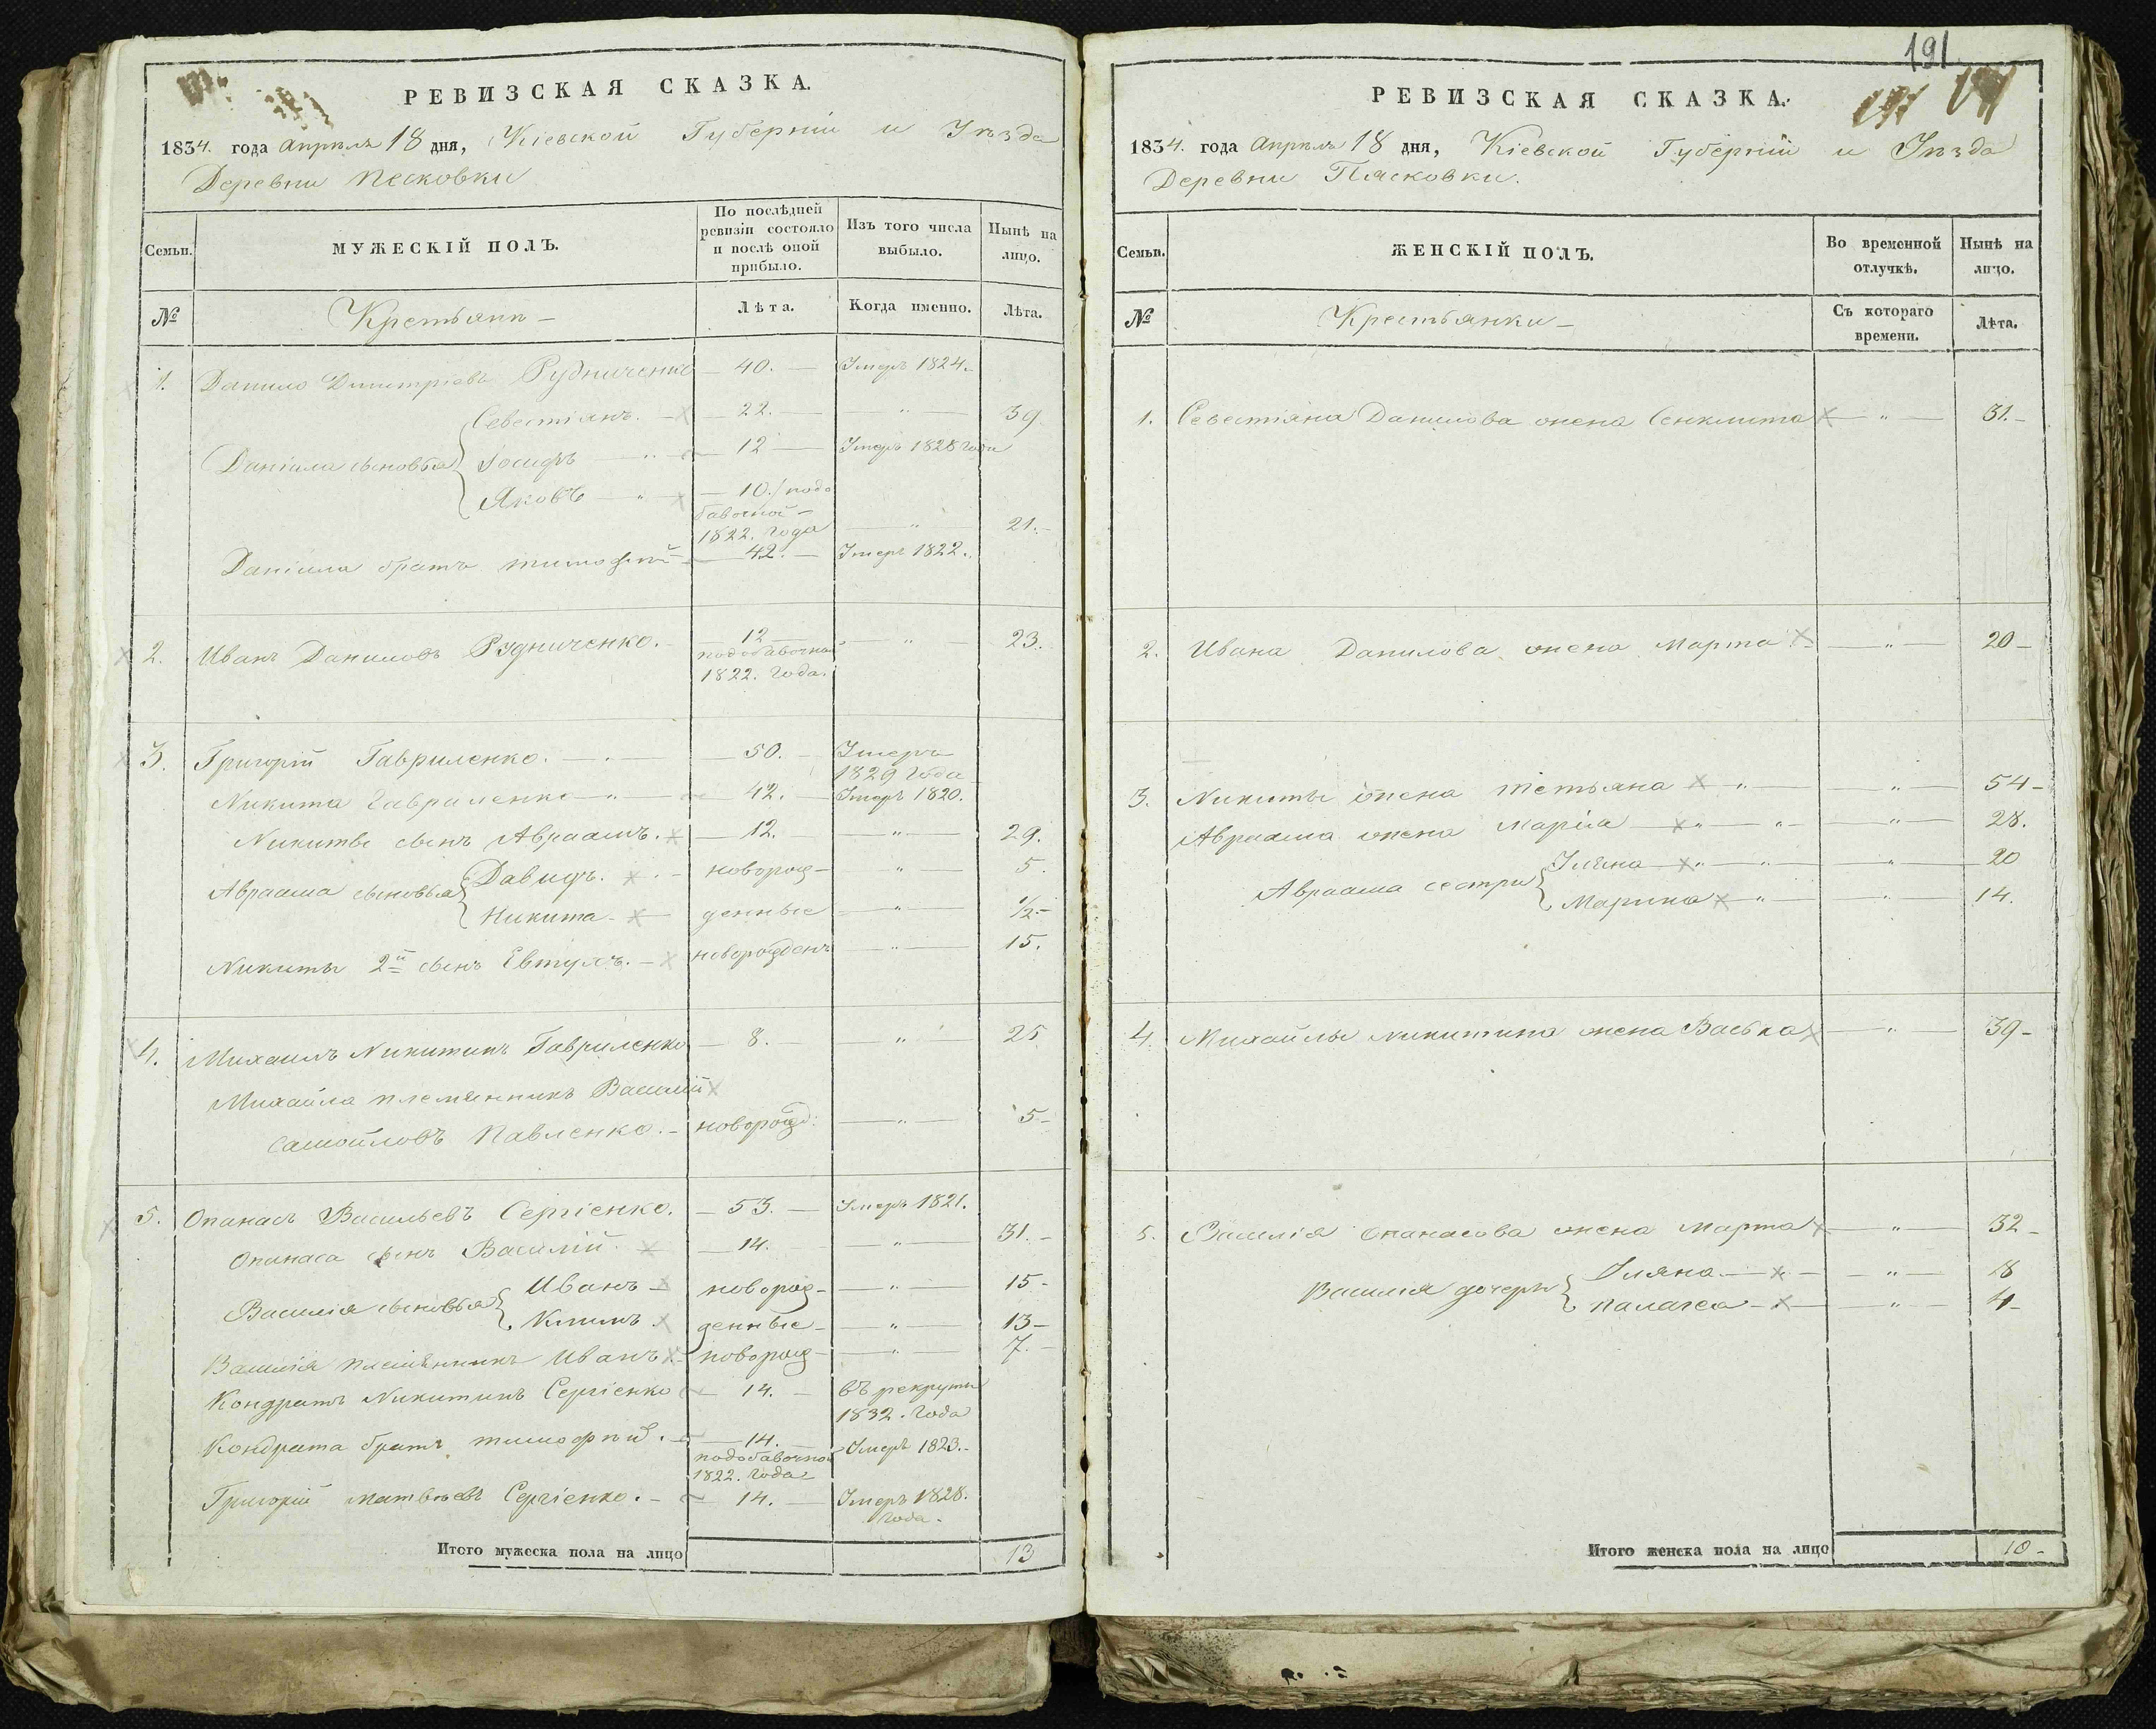 РЕВИЗСКАЯ СКАЗКА.
1834. года Апрѣля 18 дня, Кіевской Губерніи и Уѣзда
Деревни Песковки
Семьи.
МУЖЕСКІЙ ПОЛЪ.
По послѣдней ревизіи состояло и послѣ оной прибыло.
Изъ того числа выбыло.
Нынѣ на лицо.
№
Крестьянъ —
Лѣта.
Когда именно.
Лѣта.
1. Данило Димитріевъ Рудниченко — 40. — Умеръ 1824.
Севестіянъ. — 22. — " — 39
Даніила сыновья Іосифъ — " — 12 — Умеръ 1828 года
Яковъ — " — 10./подо
бавочной —
1822. года — " — 21.
Даніила братъ тимофей — 42. — Умеръ 1822.
2. Иванъ Даниловъ Рудниченко. — 12 — " — 23.
подобавочной
1822. года.
3. Григорій Гавриленко. — 50. — Умеръ
1829 года
Никита Гавриленко — " — 42. — Умеръ 1820.
Никиты сынъ Авраамъ. — 12. — " — 29.
Авраама сыновья Давидъ. — новорож- — " — 5.
Никита — денные — " — 1/2 —
Никиты 2й сынъ Евтухъ. — новорожденъ — " — 15.
4. Михаилъ Никитинъ Гавриленко — 8. — " — 25
Михайла племянникъ Василій
Самойловъ Павленко. — новорожд: — " — 5 —
5. Опанасъ Васильевъ Сергіенко. — 53. — Умеръ 1821.
Опанаса сынъ Василій. — 14. — " — 31. —
Василія сыновья Иванъ — новорож- — " — 15 —
Климъ. — денные — " — 13 —
Василія племянникъ Иванъ. — новорож- — " — 7. —
Кондратъ Никитинъ Сергіенко — 14. — въ рекруты
1832. года
Кондрата братъ тимофей. — 14. — Умеръ 1823. —
подобавочной
1822. года
Григорій Матвѣевъ Сергіенко. — 14. — Умеръ 1828.
года.
Итого мужеска пола на лицо 13
191
РЕВИЗСКАЯ СКАЗКА.
1834. года Апрѣля 18 дня, Кіевской Губерніи и Уѣзда
Деревни Пясковки.
Семьи.
ЖЕНСКІЙ ПОЛЪ.
Во временной отлучкѣ.
Нынѣ на лицо.
№
Крестьянки —
Съ котораго времени.
Лѣта.
1. Севестіяна Данилова жена Сенклита — " — 31. —
2. Ивана Данилова жена Марта — " — 20 —
3. Никиты жена тетьяна — " — 54 —
Авраама жена Марія — " — 28.
Авраама сестри Уляна — " — 20
Марина — " — 14.
4. Михайлы Никитина жена Васька — " — 39 —
5. Василія Опанасова жена Марта — " — 32 —
Василія дочери Уляна — " — 18
палагея — " — 4 —
Итого женска пола на лицо 10 —